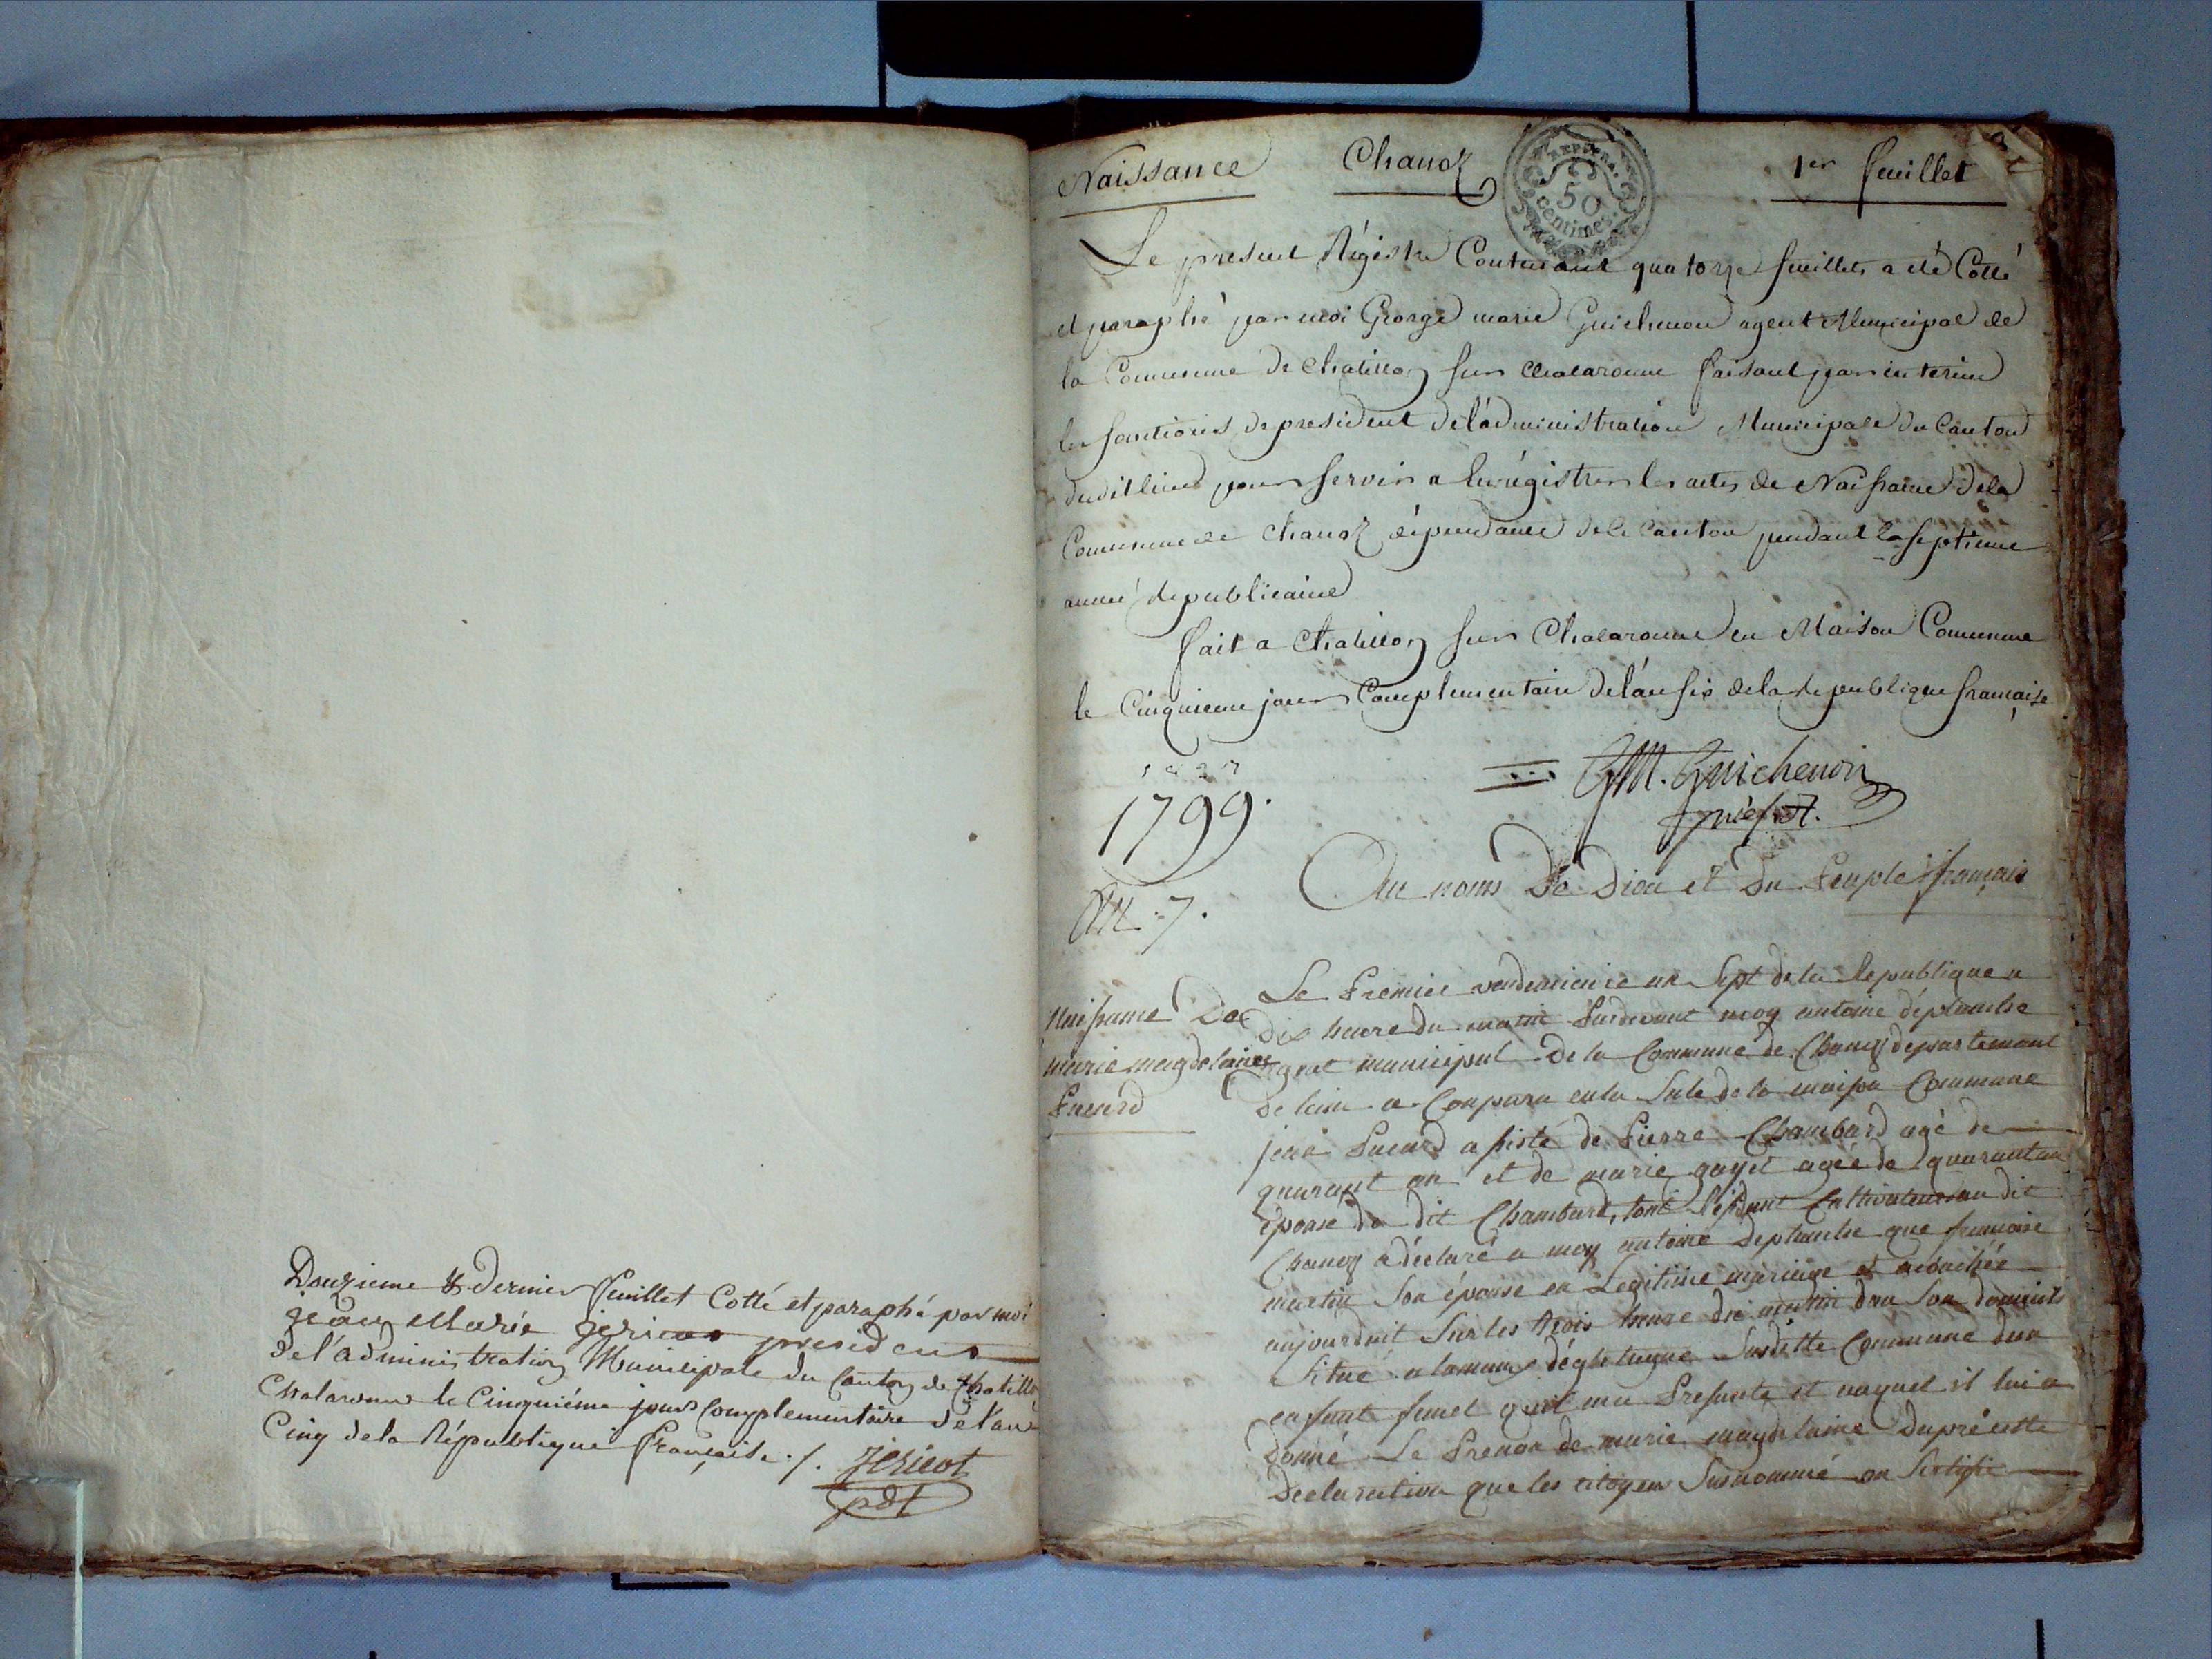 Douzieme & dernier feuillet Cotté et paraphé par moi
jean Marie president
de l'administration Municipale du Canton de Chatillon
Chalaronne le Cinquiéme jour Complementaire de l'an
Cinq de la République française ./.
pdt
Naissance Chanoz 1er feuillet
50
centimes
Le present Régistre Contenant quatorze feuillets a été Cotté
et paraphé par moi George marie Guichenon agent Municipal de
la Commune de Chatillon sur Chalaronne faisant par interim
les fonctions de president de l'administration Municipale du Canton
dudit lieu pour servir a Enrégistrer les actes de Naissance de la
Commune de Chanoz dépendance de ce Canton pendant la septieme
année Republicaine
fait a Chatillon sur Chalaronne en Maison Commune
le Cinquieme jour Complementaire de l'an six de la Republique française
1799.
GM. Guichenon
AN. 7.
Au noms De Dieu et Du Peuple français
Naissance De
marie magdelaine
Le Premier vendemiaire an Sept de la Republique a
dix heure du matin Pardevant moy antoine déplanche
agent municipal De la Commune de Chanoz departemant
De lain a Comparu en la Sale de la maison Commune
jean assisté de Pierre Chambard agé de
quarant an et de marie gayet agée de quarant an
épouse du dit Chambard, tout Résidant Cultivateur au dit
Chanoz a déclaré a moy antoine Deplanche que francoise
martin Son épouse en Legitime mariage est acouchée
aujourduit Sur les trois heure du matin dan Son domicile
Situé Susditte Commune dun
enfant femel quil ma Presenté et auquel il lui a
Donné Le Prenon de marie magdelaine Dapré cette
Declaration que les citoyen Susnommé on Sertifié